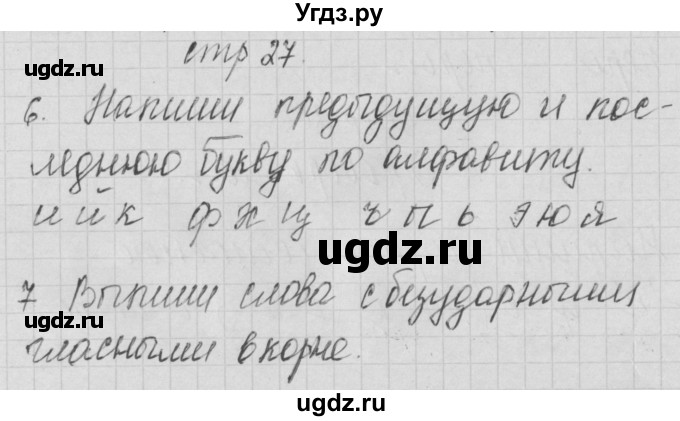 Угдз.ру
стр 27.
ugdz.ru
ugdz.ru
6. Напиши предыдущую и пос-
леднюю букву по алфавиту.
и й к ф х ц ъ ы ь э ю я
ugdz.ru
ugdz.ru
7 Выпиши слова с безударными
гласными в корне.
ugdz.ru
ugdz.ru